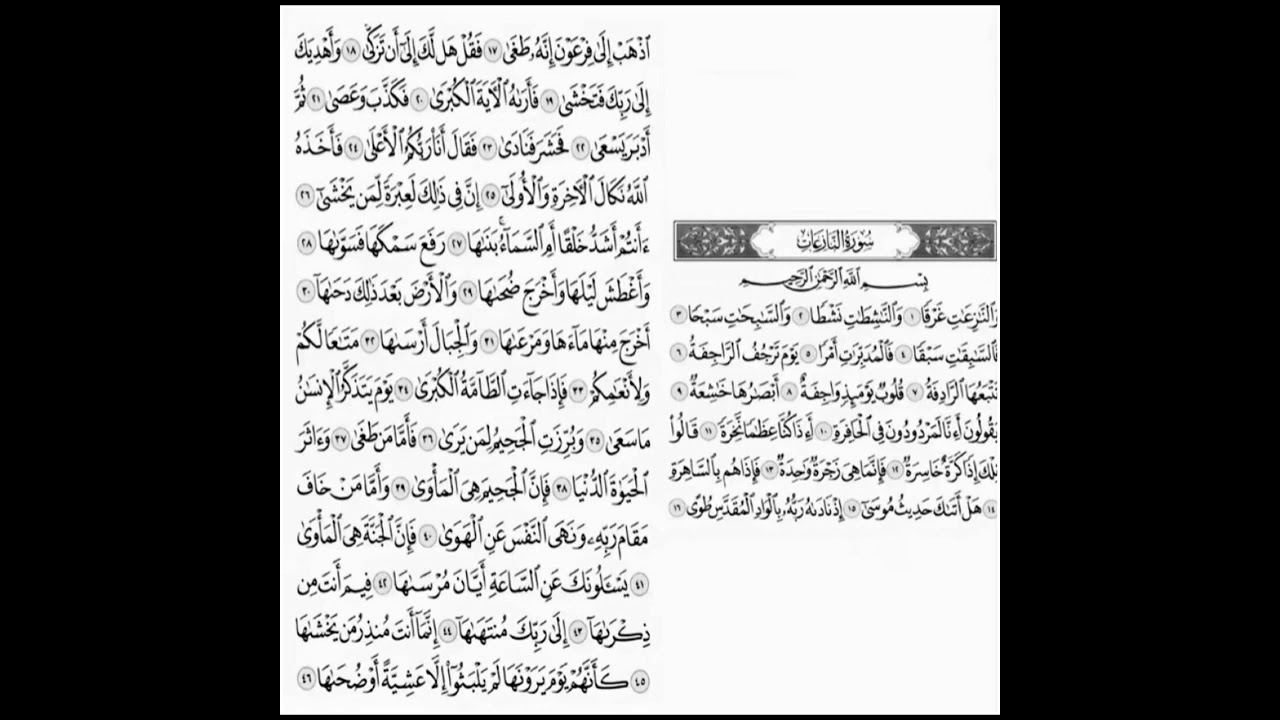 سُورَةُ النَّازِعَاتِ
بِسْمِ اللَّهِ الرَّحْمَٰنِ الرَّحِيمِ
وَالنَّٰزِعَٰتِ غَرْقًا ١ وَالنَّٰشِطَٰتِ نَشْطًا ٢ وَالسَّٰبِحَٰتِ سَبْحًا ٣
فَالسَّٰبِقَٰتِ سَبْقًا ٤ فَالْمُدَبِّرَٰتِ أَمْرًا ٥ يَوْمَ تَرْجُفُ الرَّاجِفَةُ ٦
تَتْبَعُهَا الرَّادِفَةُ ٧ قُلُوبٌ يَوْمَئِذٍ وَاجِفَةٌ ٨ أَبْصَٰرُهَا خَٰشِعَةٌ ٩
يَقُولُونَ أَءِنَّا لَمَرْدُودُونَ فِي الْحَافِرَةِ ١٠ أَءِذَا كُنَّا عِظَٰمًا نَّخِرَةً ١١ قَالُوا۟
تِلْكَ إِذًا كَرَّةٌ خَاسِرَةٌ ١٢ فَإِنَّمَا هِيَ زَجْرَةٌ وَٰحِدَةٌ ١٣ فَإِذَا هُم بِالسَّاهِرَةِ
١٤ هَلْ أَتَىٰكَ حَدِيثُ مُوسَىٰٓ ١٥ إِذْ نَادَىٰهُ رَبُّهُۥ بِالْوَادِ الْمُقَدَّسِ طُوًى ١٦
اذْهَبْ إِلَىٰ فِرْعَوْنَ إِنَّهُۥ طَغَىٰ ١٧ فَقُلْ هَل لَّكَ إِلَىٰٓ أَن تَزَكَّىٰ ١٨ وَأَهْدِيَكَ
إِلَىٰ رَبِّكَ فَتَخْشَىٰ ١٩ فَأَرَىٰهُ الْآيَةَ الْكُبْرَىٰ ٢٠ فَكَذَّبَ وَعَصَىٰ ٢١ ثُمَّ
أَدْبَرَ يَسْعَىٰ ٢٢ فَحَشَرَ فَنَادَىٰ ٢٣ فَقَالَ أَنَا۠ رَبُّكُمُ الْأَعْلَىٰ ٢٤ فَأَخَذَهُ
اللَّهُ نَكَالَ الْآخِرَةِ وَالْأُولَىٰٓ ٢٥ إِنَّ فِي ذَٰلِكَ لَعِبْرَةً لِّمَن يَخْشَىٰٓ ٢٦
ءَأَنتُمْ أَشَدُّ خَلْقًا أَمِ السَّمَآءُ ۚ بَنَىٰهَا ٢٧ رَفَعَ سَمْكَهَا فَسَوَّىٰهَا ٢٨
وَأَغْطَشَ لَيْلَهَا وَأَخْرَجَ ضُحَىٰهَا ٢٩ وَالْأَرْضَ بَعْدَ ذَٰلِكَ دَحَىٰهَآ ٣٠
أَخْرَجَ مِنْهَا مَآءَهَا وَمَرْعَىٰهَا ٣١ وَالْجِبَالَ أَرْسَىٰهَا ٣٢ مَتَٰعًا لَّكُمْ
وَلِأَنْعَٰمِكُمْ ٣٣ فَإِذَا جَآءَتِ الطَّآمَّةُ الْكُبْرَىٰ ٣٤ يَوْمَ يَتَذَكَّرُ الْإِنسَٰنُ
مَا سَعَىٰ ٣٥ وَبُرِّزَتِ الْجَحِيمُ لِمَن يَرَىٰ ٣٦ فَأَمَّا مَن طَغَىٰ ٣٧ وَءَاثَرَ
الْحَيَوٰةَ الدُّنْيَا ٣٨ فَإِنَّ الْجَحِيمَ هِيَ الْمَأْوَىٰ ٣٩ وَأَمَّا مَنْ خَافَ
مَقَامَ رَبِّهِۦ وَنَهَى النَّفْسَ عَنِ الْهَوَىٰ ٤٠ فَإِنَّ الْجَنَّةَ هِيَ الْمَأْوَىٰ
٤١ يَسْـَٔلُونَكَ عَنِ السَّاعَةِ أَيَّانَ مُرْسَىٰهَا ٤٢ فِيمَ أَنتَ مِن
ذِكْرَىٰهَآ ٤٣ إِلَىٰ رَبِّكَ مُنتَهَىٰهَآ ٤٤ إِنَّمَآ أَنتَ مُنذِرُ مَن يَخْشَىٰهَا
٤٥ كَأَنَّهُمْ يَوْمَ يَرَوْنَهَا لَمْ يَلْبَثُوٓا۟ إِلَّا عَشِيَّةً أَوْ ضُحَىٰهَا ٤٦